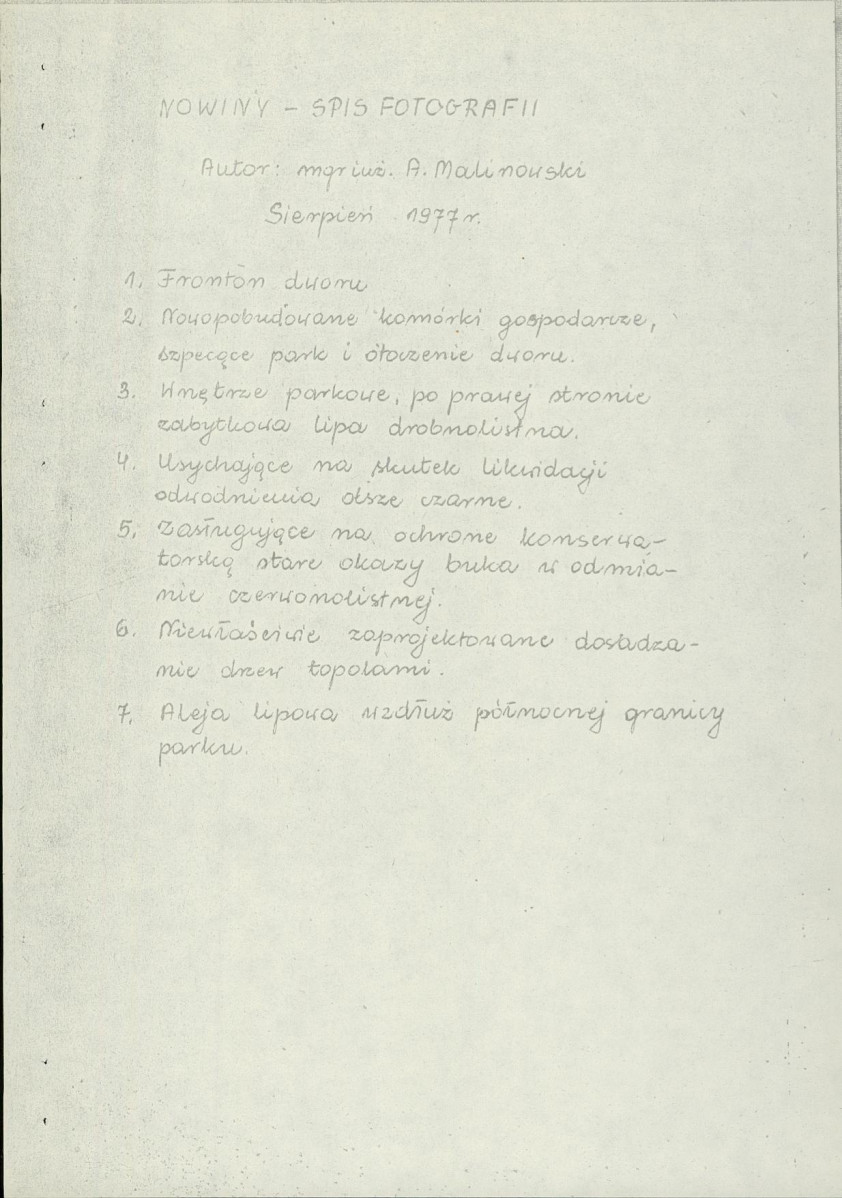 NOWINY - SPIS FOTOGRAFII
Autor: mgr inż. A. Malinowski
Sierpień 1977 r.
1. Fronton dworu
2. Nowopobudowane komórki gospodarcze,
szpecące park i otoczenie dworu.
3. Wnętrze parkowe, po prawej stronie
zabytkowa lipa drobnolistna.
4. Usychające na skutek likwidacji
odwodnienia olsze czarne.
5. Zasługujące na ochronę konserwa-
torską stare okazy buka w odmia-
nie czerwonolistnej.
6. Niewłaściwie zaprojektowane dosadza-
nie drzew topolami.
7. Aleja lipowa wzdłuż północnej granicy
parku.